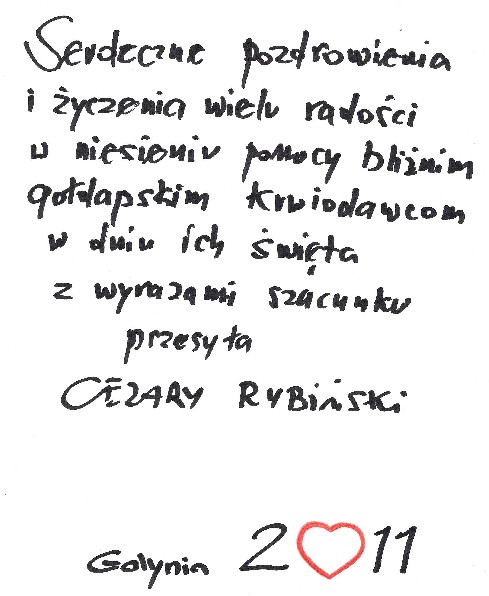 Serdeczne pozdrowienia
i życzenia wielu radości
w niesieniu pomocy bliźnim
gołdapskim krwiodawcom
w dniu ich święta
z wyrazami szacunku
przesyła
CEZARY RYBIŃSKI
Golynia 2♡11